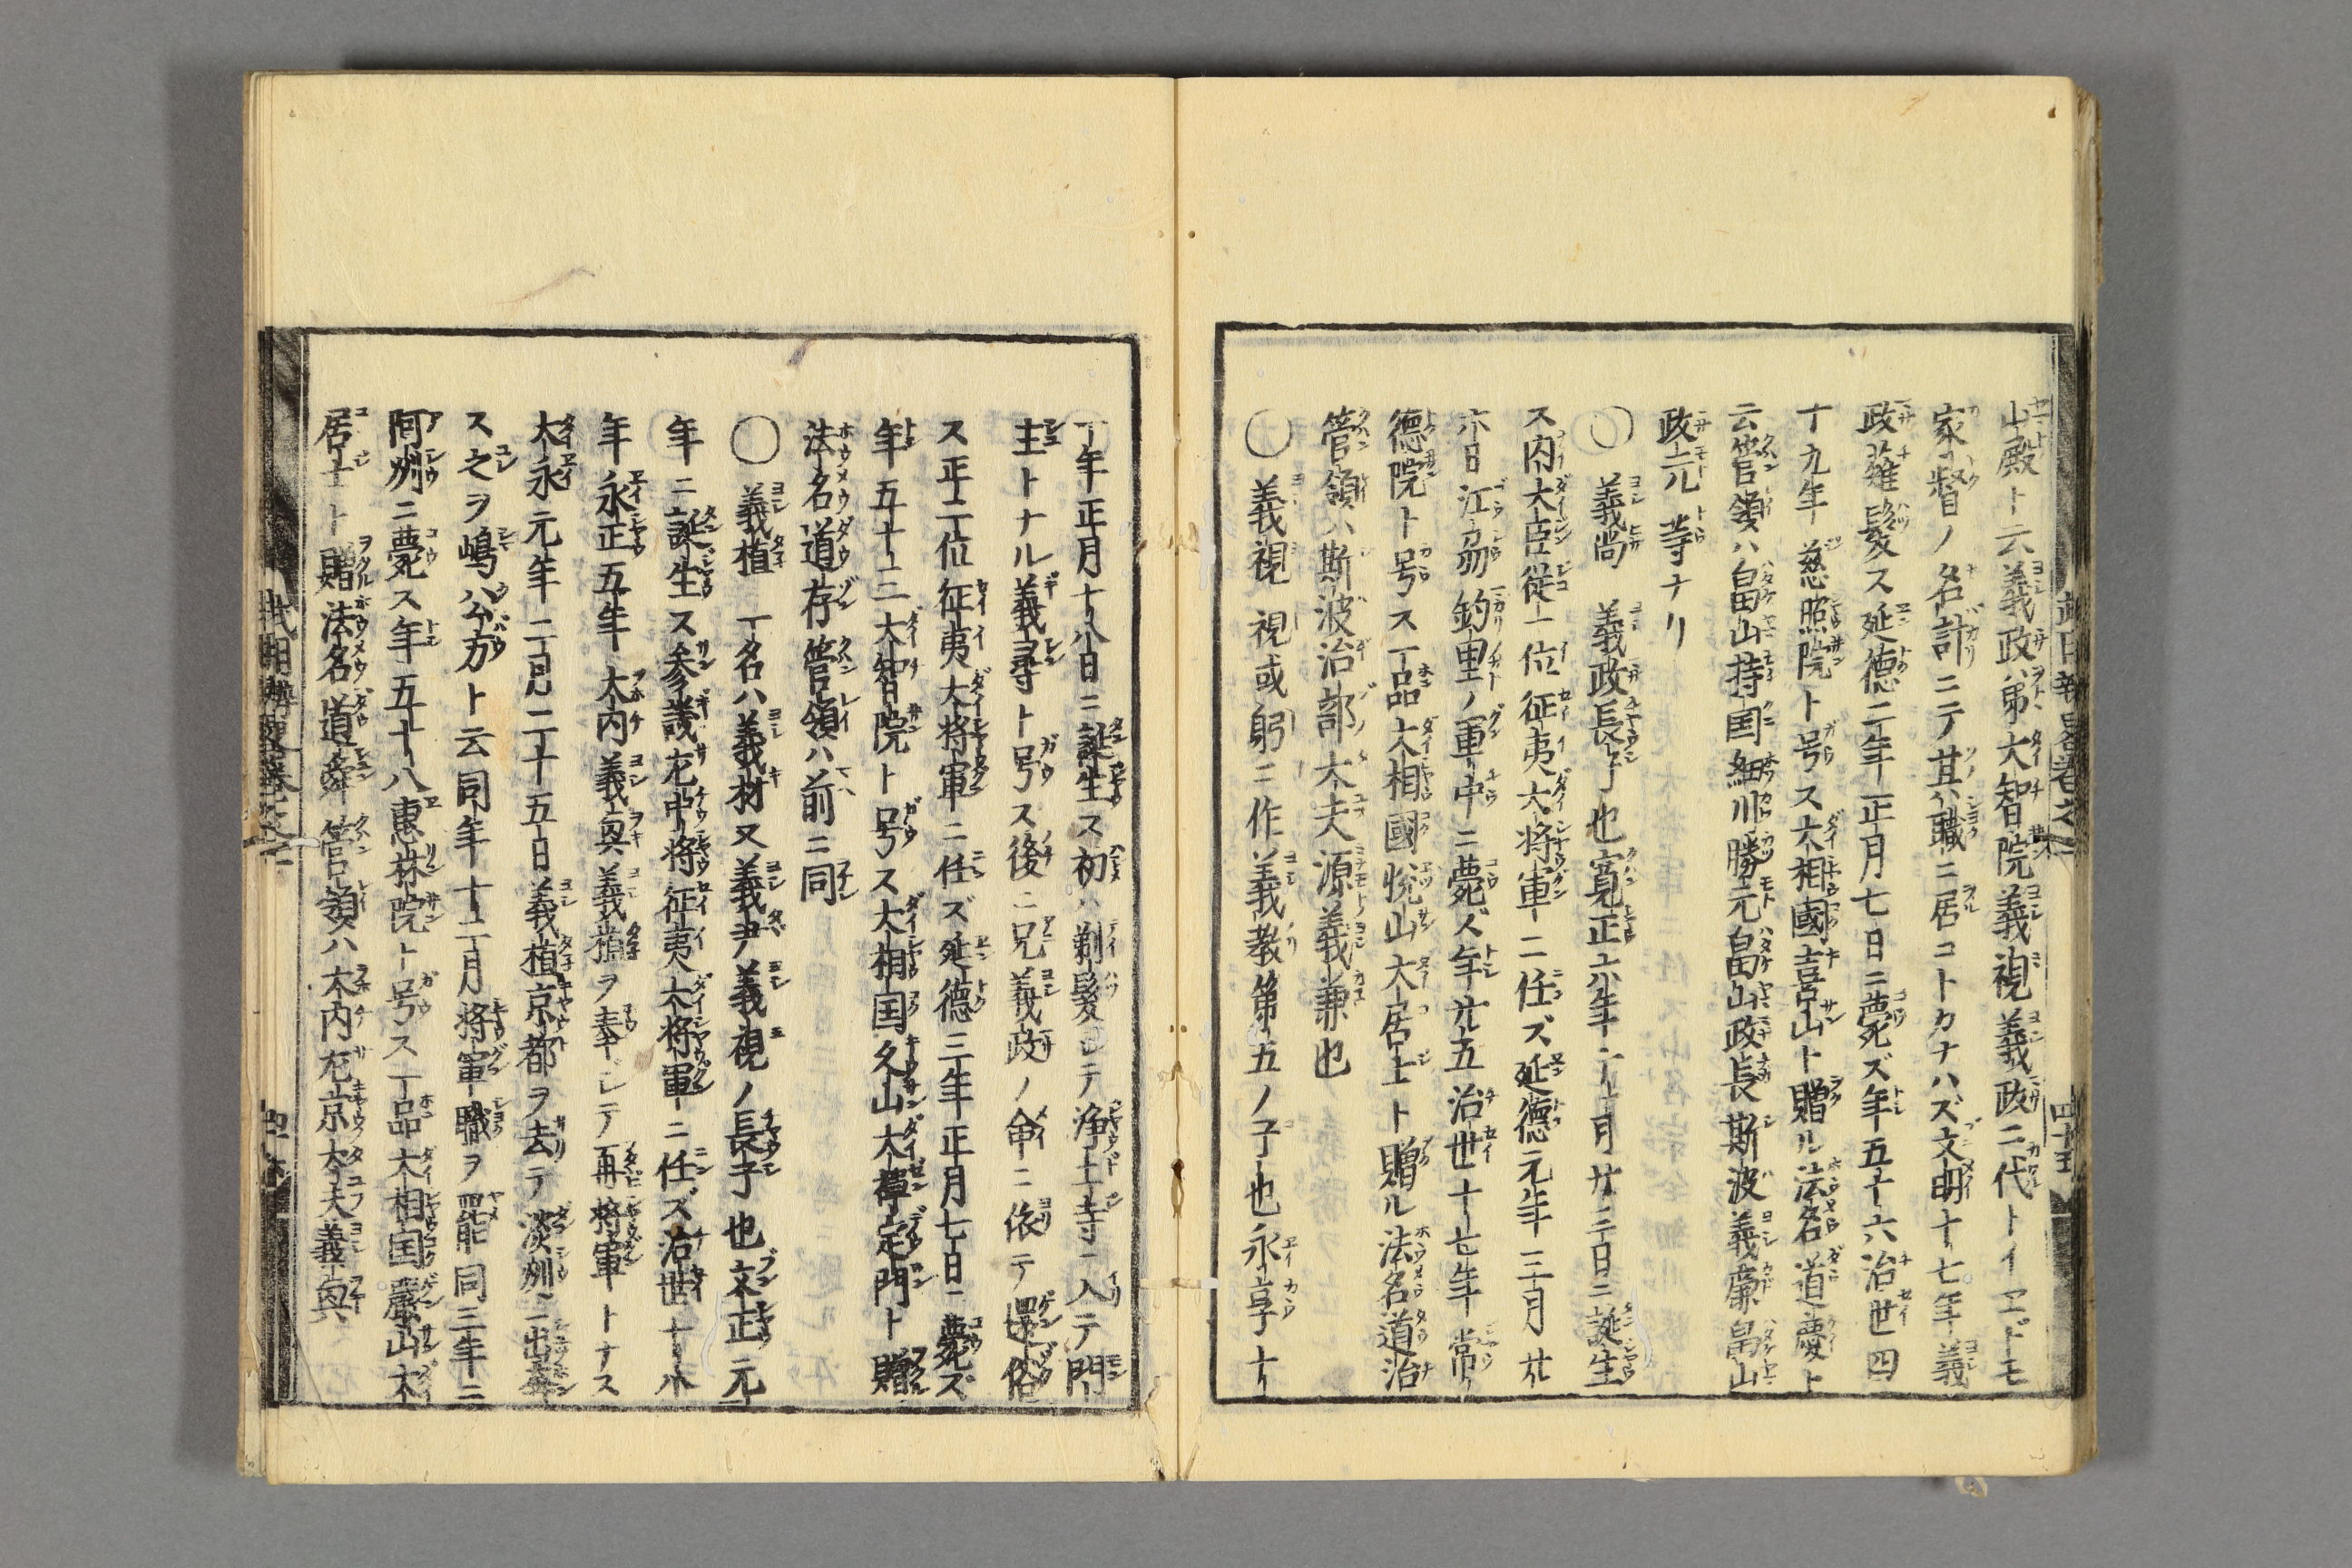 山殿ト云義政ハ弟大智院義視義政ニ代トイヱドモ
家督ノ名計ニテ其職ニ居コトカナハズ文明十七年義
政薙髪ス延徳二年正月七日ニ薨ズ年五十六治世四
十九年慈照院ト号ス大相國喜山ト贈ル法名道慶ト
云管領ハ畠山持国細川勝元畠山政長斯波義廉畠山
政元等ナリ
〇義尚 義政長子也寛正六年十一月廿三日ニ誕生
ス内大臣従一位征夷大将軍ニ任ズ延徳元年三月廿
六日江刕釣里ノ軍中ニ薨ズ年廿五治世十七年常
徳院ト号ス一品大相國悦山大居士ト贈ル法名道治
管領ハ斯波治部大夫源義兼也
〇義視 視或躬ニ作義教第五ノ子也永享十
一年正月十八日ニ誕生ス初ハ剃髪シテ浄土寺ニ入テ門
主トナル義尋ト号ス後ニ兄義政ノ命ニ依テ還俗
ス正二位征夷大将軍ニ任ズ延徳三年正月七日ニ薨ズ
年五十三大智院ト号ス大相国久山大禅定門ト贈
法名道存管領ハ前ニ同
〇義植 一名ハ義材又義尹義視ノ長子也文正元
年ニ誕生ス参議左中将征夷大将軍ニ任ズ治世十八
年永正五年大内義奥義植ヲ奉シテ再将軍トナス
大永元年二月二十五日義植京都ヲ去テ淡州ニ出奔
ス之ヲ嶋ハ公方ト云同年十二月将軍職ヲ罷同三年ニ
阿州ニ薨ス年五十八惠林院ト号ス一品大相国巖山大
居士ト贈法名道舜管領ハ大内左京大夫義奥